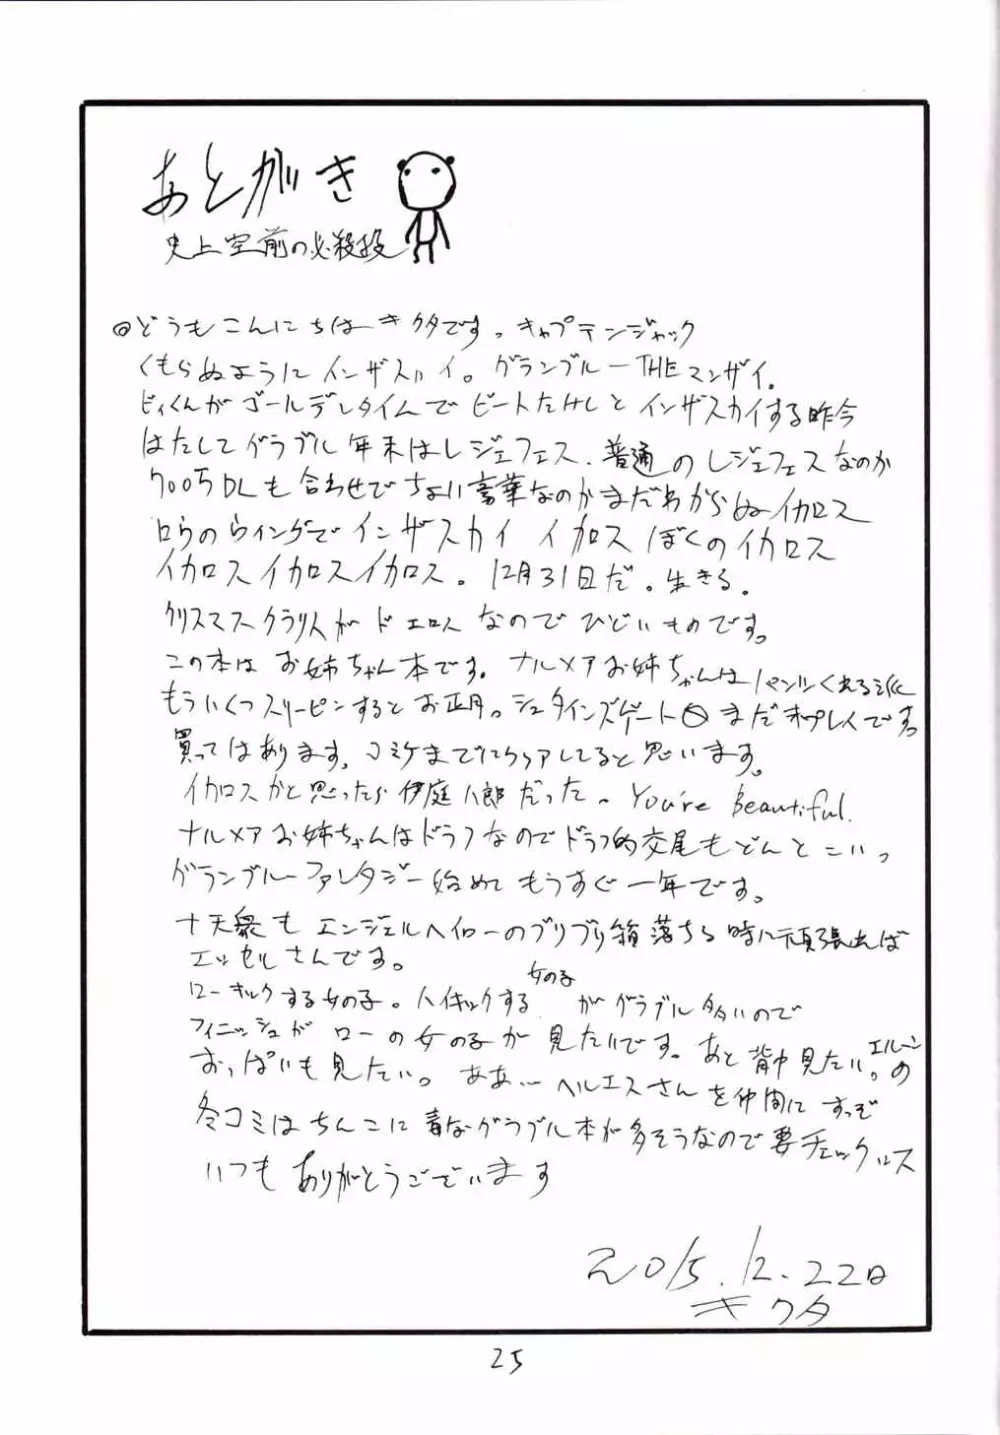 あとがき
史上空前の必殺技
◎どうもこんにちはキクタです。キャプテンジャック
くもらぬようにインザスカイ。グランブルーTHEマンザイ。
ビィくんがゴールデンタイムでビートたけしとインザスカイする昨今
はたしてグラブル年末はレジェフェス、普通のレジェフェスなのか
700万DLも合わせてちょい豪華なのかまだわからぬイカロス
ロウのウィングでインザスカイ イカロス ぼくのイカロス
イカロスイカロスイカロス。12月31日だ。生きる。
クリスマスクラリスがドエロスなのでひどいものです。
この本はお姉ちゃん本です。ナルメアお姉ちゃんはパンツくれる派
もういくつスリーピンするとお正月。シュタインズゲート0まだ未プレイです。
買ってはあります。コミケまでにクリアしてると思います。
イカロスかと思ったら伊庭八郎だった。You're Beautiful.
ナルメアお姉ちゃんはドラフなのでドラフ的交尾もどんとこいっ
グランブルーファンタジー始めてもうすぐ一年です。
十天衆もエンジェルヘイローのブリブリ箱落ちる時に頑張れば
エッセルさんです。
ローキックする女の子。ハイキックする女の子がグラブル多いので
フィニッシュがローの女の子が見たいです。あと背中見たい。エルーンの
おっぱいも見たい。ああ…ヘルエスさんを仲間にすっぞ
冬コミはちんこに毒なグラブル本が多そうなので要チェックロス
いつもありがとうございます
2015.12.22日
キクタ
25